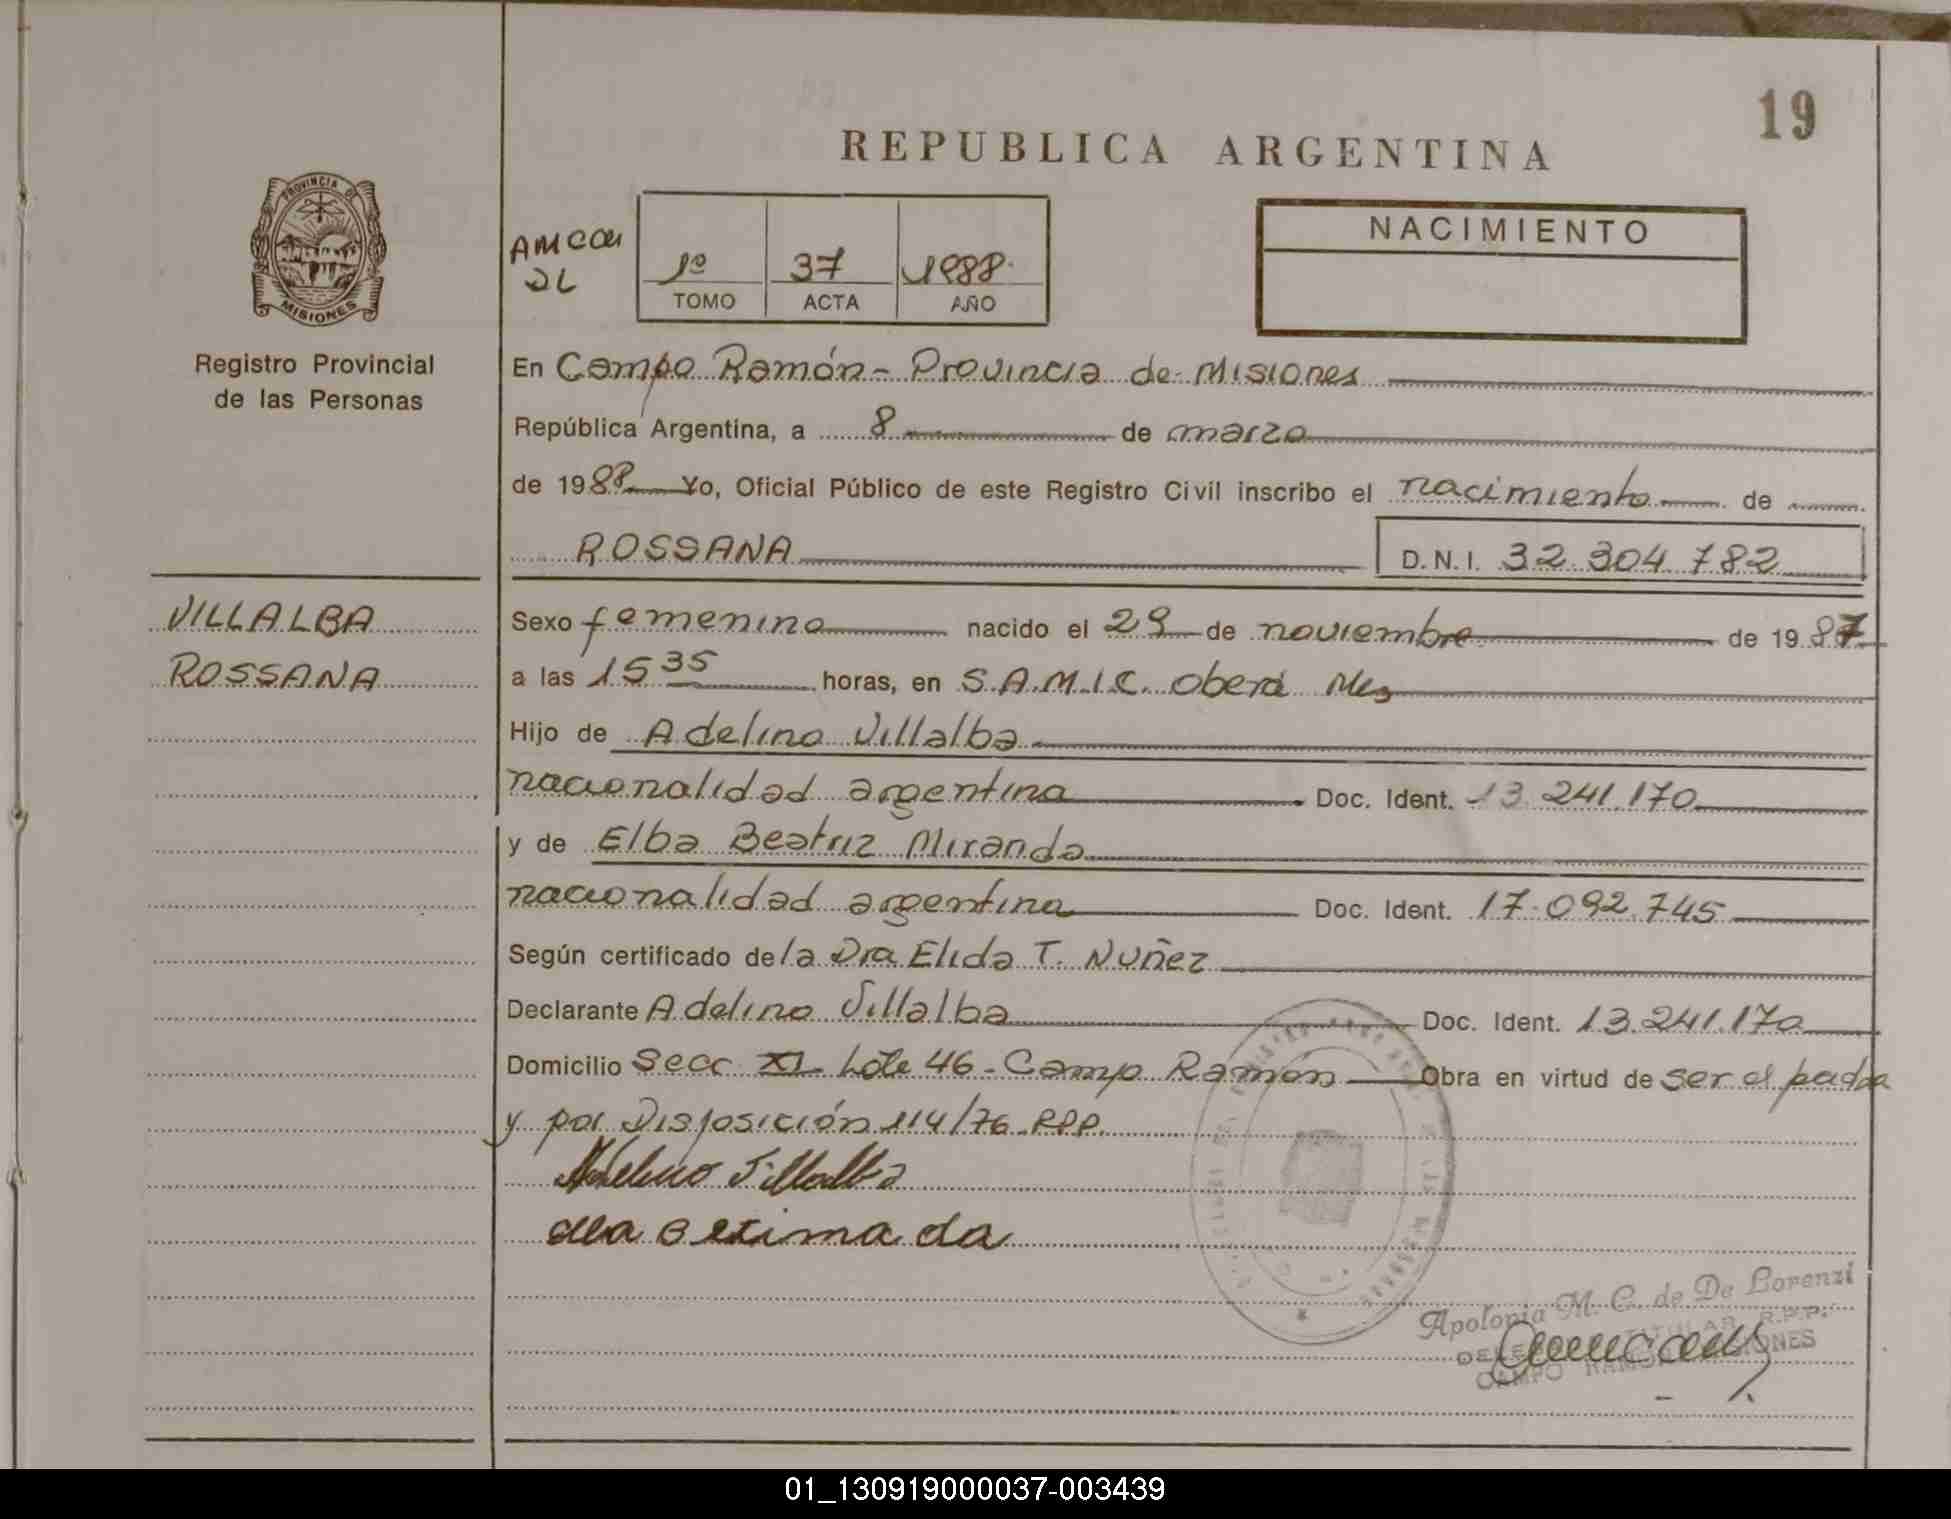 19
REPUBLICA ARGENTINA
PROVINCIA DE
MISIONES
Registro Provincial
de las Personas
AMCDL
1º 37 1988
TOMO ACTA AÑO
NACIMIENTO
En Campo Ramón - Provincia de Misiones
República Argentina, a 8 de marzo
de 1988 Yo, Oficial Público de este Registro Civil inscribo el nacimiento de
ROSSANA D.N.I. 32.304.782
VILLALBA
ROSSANA
Sexo femenino nacido el 29 de noviembre de 1987
a las 15 35 horas, en S.A.M.I.C. Oberá Mes
Hijo de Adelino Villalba
nacionalidad argentina Doc. Ident. 13.241.170
y de Elba Beatriz Miranda
nacionalidad argentina Doc. Ident. 17.092.745
Según certificado de la Dra Elida T. Nuñez
Declarante Adelino Villalba Doc. Ident. 13.241.170
Domicilio Secc XI Lote 46 - Camp Ramón Obra en virtud de ser el padre
y por Disposición 114/76 R.P.P.
Adelino Villalba
Apolonia M. C. de De Lorenzi
TITULAR R.P.P.
CAMPO RAMON MISIONES
01_130919000037-003439